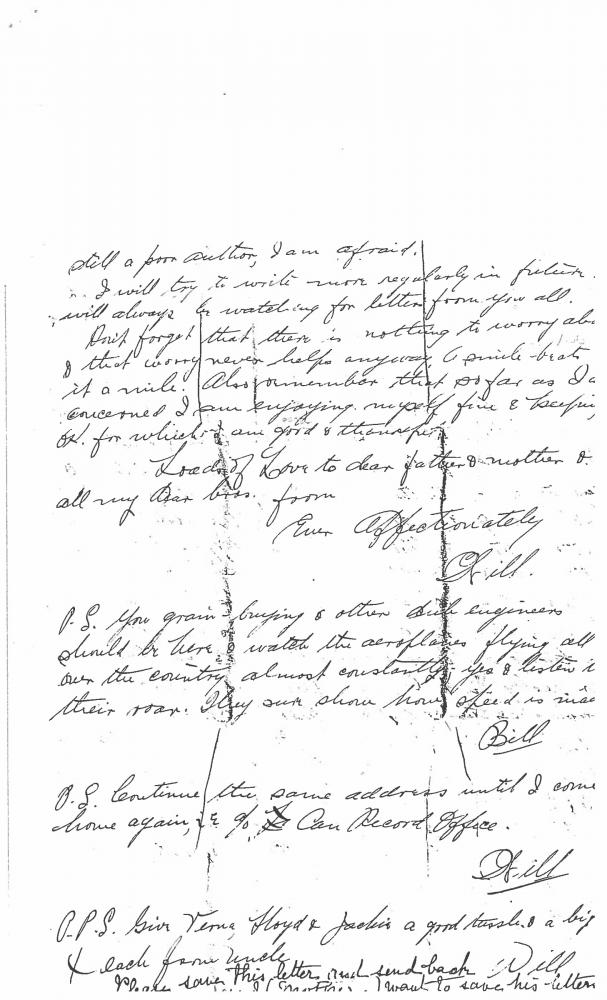 still a poor author, I am afraid.
I will try to write more regularly in future.
will always be watching for letter from you all.
Don't forget that there is nothing to worry abo
& that worry never helps anyway, & smile beats
it a mile. Also remember that so far as I a
concerned I am enjoying myself fine & keepin
ok. for which I am good & thankful.
Loads of Love to dear father & mother &
all my dear bros. from
Ever Affectionately
Will.
P.S. You grain-buying & other engineers
should be here & watch the aeroplanes flying all
over the country almost constantly, yes & listen t
their roar. They sure show how speed is mad
Bill
P.S. Continue the same address until I come
home again, i.e. c/o Can Record Office.
Will
P.P.S. Give Verna, Floyd & Jackie a good tussle & a big
X each from Uncle Will
Please save this letter and send back
I (Mother) want to save his letters